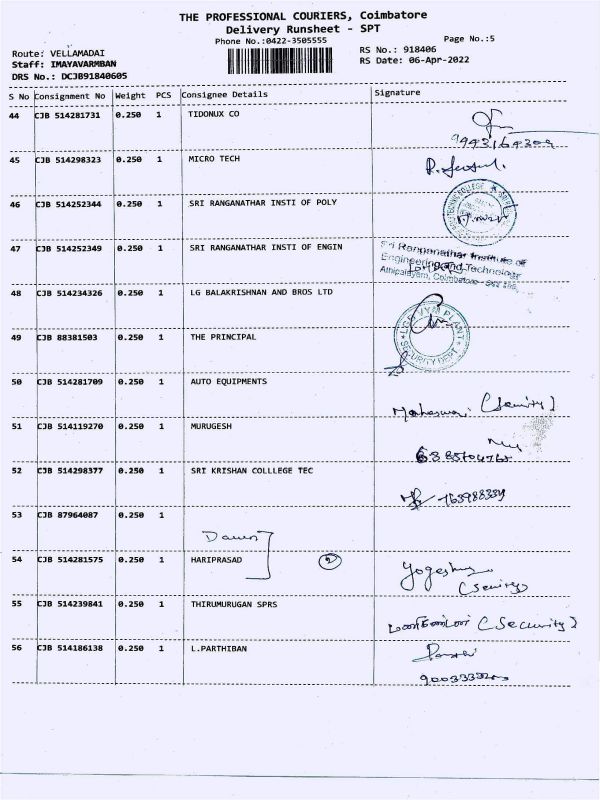 THE PROFESSIONAL COURIERS, Coimbatore
Delivery Runsheet - SPT
Phone No.:0422-3505555
Page No.:5
Route: VELLAMADAI
RS No.: 918406
Staff: IMAYAVARMBAN
RS Date: 06-Apr-2022
DRS No.: DCJB91840605
S No Consignment No Weight PCS Consignee Details Signature
44 CJB 514281731 0.250 1 TIDONUX CO
45 CJB 514298323 0.250 1 MICRO TECH
46 CJB 514252344 0.250 1 SRI RANGANATHAR INSTI OF POLY
47 CJB 514252349 0.250 1 SRI RANGANATHAR INSTI OF ENGIN
Sri Ranganathar Institute of
Engineering and Technology
Athipalayam, Coimbatore
48 CJB 514234326 0.250 1 LG BALAKRISHNAN AND BROS LTD
49 CJB 88381503 0.250 1 THE PRINCIPAL
SECURITY DEPT
50 CJB 514281709 0.250 1 AUTO EQUIPMENTS
51 CJB 514119270 0.250 1 MURUGESH
52 CJB 514298377 0.250 1 SRI KRISHAN COLLLEGE TEC
53 CJB 87964087 0.250 1
54 CJB 514281575 0.250 1 HARIPRASAD
55 CJB 514239841 0.250 1 THIRUMURUGAN SPRS
(Security)
56 CJB 514186138 0.250 1 L.PARTHIBAN